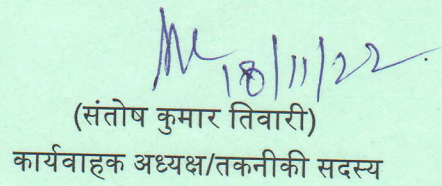 18/11/22
(संतोष कुमार तिवारी)
कार्यवाहक अध्यक्ष/तकनीकी सदस्य